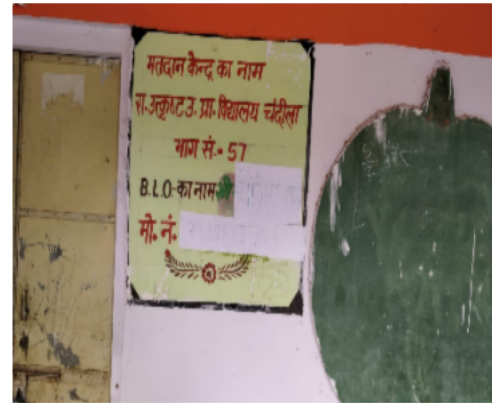 मतदान केन्द्र का नाम
रा. उत्कृष्ट उ. प्रा. विद्यालय चंदीला
भाग सं.- 57
B.L.O-का नाम श्री
मो. नं.